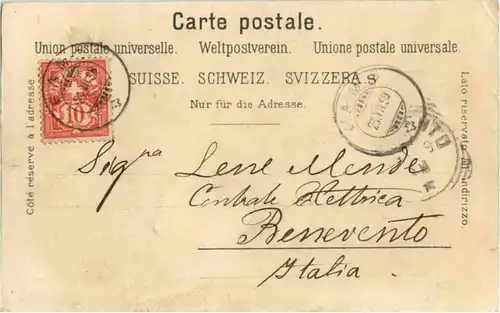 Carte postale.
Union postale universelle. Weltpostverein. Unione postale universale.
SUISSE. SCHWEIZ. SVIZZERA.
Nur für die Adresse.
Côté réservé à l'adresse.
Lato riservato all'indirizzo.
10
Sigra Lene Mende
Centrale Elettrica
Benevento
Italia.